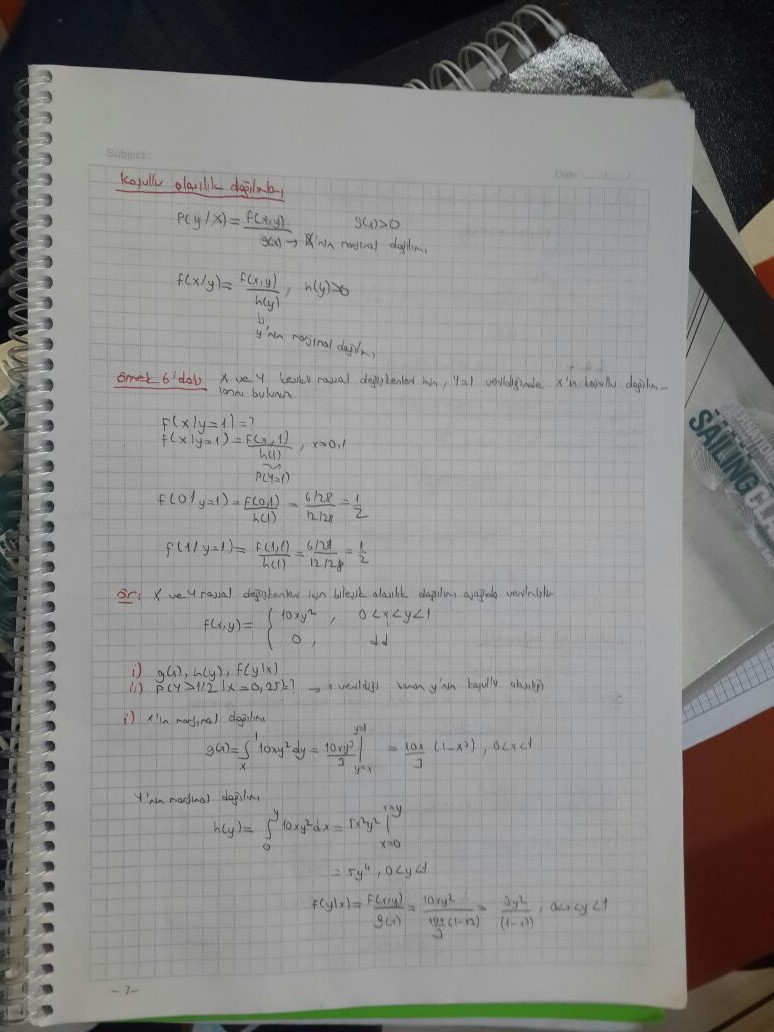 Subject :
Date
Koşullu olasılık dağılımları
P(y/x) = f(x,y) / g(x) → X'nın marjinal dağılımı g(x)>0
f(x/y) = f(x,y) / h(y) , h(y)>0
y'nın marjinal dağılımı
Örnek 6'daki X ve Y kesikli rassal değişkenleri için, Y=1 verildiğinde X'in koşullu dağılım-
larını bulunuz
f(x|y=1)=?
f(x|y=1) = f(x,1) / h(1) , x=0,1
P(Y=1)
f(0/y=1) = f(0,1) / h(1) = 6/28 / 12/28 = 1/2
f(1/y=1) = f(1,1) / h(1) = 6/28 / 12/28 = 1/2
Ör: X ve Y rassal değişkenler için bileşik olasılık dağılımı aşağıda verilmiştir
f(x,y) = { 10xy² , 0<x<y<1
0 , dd
i) g(x), h(y), f(y|x)
ii) P(Y>1/2 | x=0,25)? → x verildiği zaman y'nin koşullu olasılığı
i) x'in marjinal dağılımı
g(x) = ∫ₓ¹ 10xy² dy = 10xy³/3 | y=1 y=x = 10x/3 (1-x³) , 0<x<1
Y'nın marjinal dağılımı
h(y) = ∫₀ʸ 10xy² dx = 5x²y² | x=y x=0
= 5y⁴ , 0<y<1
f(y|x) = f(x,y) / g(x) = 10xy² / 10x/3 (1-x³) = 3y² / (1-x³) , 0<x<y<1
- 7 -
SAILING